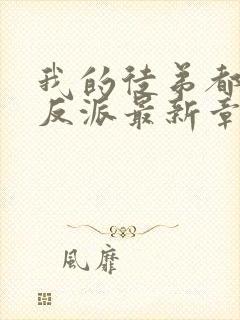 我的徒弟都
反派最新章
風靡